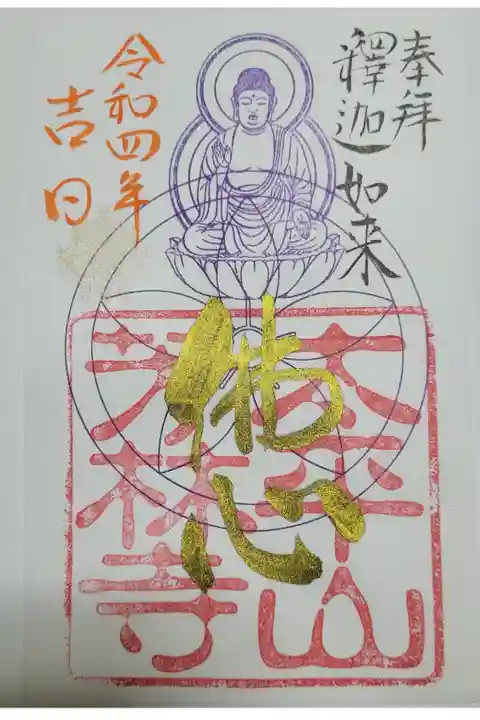 奉拝
釋迦如来
令和四年
吉日
佛心
太平山
芳林寺